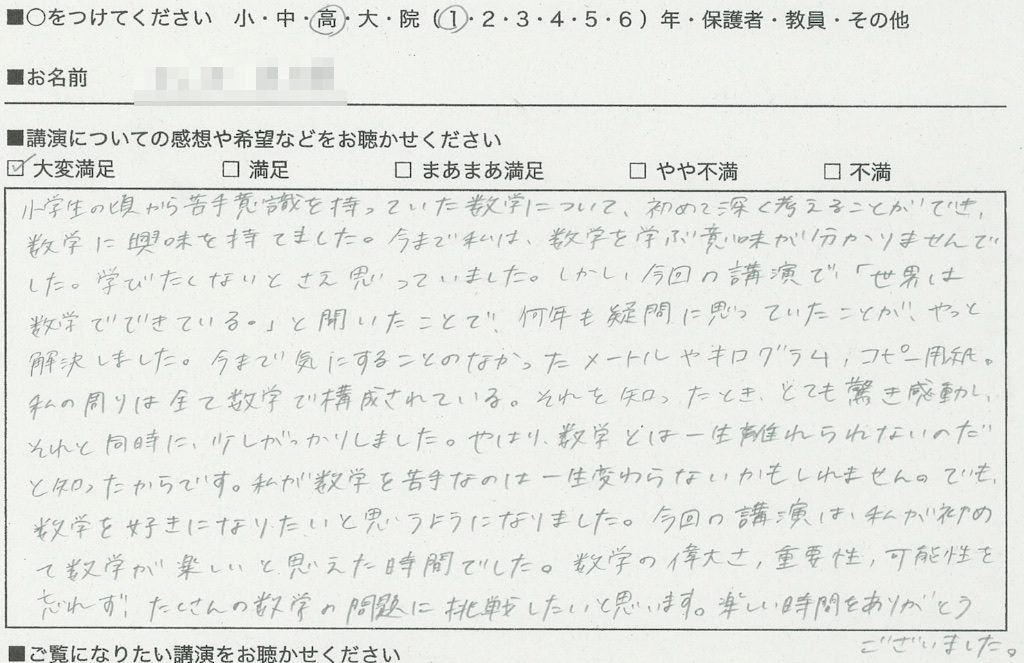 ■○をつけてください 小・中・高・大・院(1・2・3・4・5・6)年・保護者・教員・その他
■お名前
■講演についての感想や希望などをお聴かせください
☑大変満足 □満足 □まあまあ満足 □やや不満 □不満
小学生の頃から苦手意識を持っていた数学について、初めて深く考えることができ、
数学に興味を持てました。今まで私は、数学を学ぶ意味が分かりませんで
した。学びたくないとさえ思っていました。しかし、今回の講演で「世界は
数学でできている。」と聞いたことで、何年も疑問に思っていたことが、やっと
解決しました。今まで気にすることのなかったメートルやキログラム,コピー用紙。
私の周りは全て数学で構成されている。それを知ったとき、とても驚き感動し、
それと同時に、少しがっかりしました。やはり、数学とは一生離れられないのだ
と知ったからです。私が数学を苦手なのは一生変わらないかもしれません。でも、
数学を好きになりたいと思うようになりました。今回の講演は、私が初め
て数学が楽しいと思えた時間でした。数学の偉大さ,重要性,可能性を
忘れず、たくさんの数学の問題に挑戦したいと思います。楽しい時間をありがとう
ございました。
■ご覧になりたい講演をお聴かせください